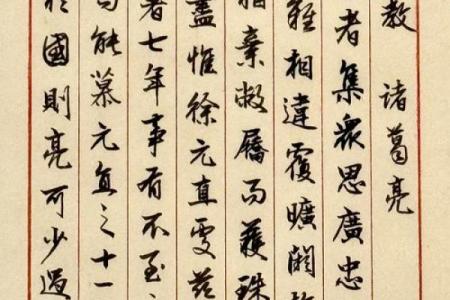 教 諸葛亮
者集衆思廣忠
難相違覆曠闕
棄敝屩而獲珠
盡惟徐元直處茲
署七年事有不至
苟能慕元直之十一
於國則亮可少過